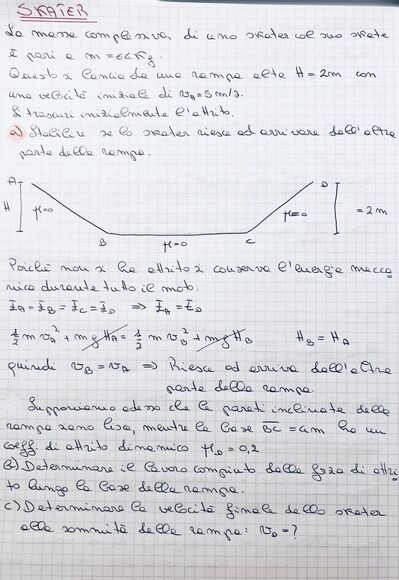 SKATER
La massa complessiva di uno skater col suo skate
è pari a m = 60 Kg.
Questo si lancia da una rampa alta H = 2m con
una velocità iniziale di v_A = 5 m/s.
Si trascuri inizialmente l'attrito.
a) Stabilire se lo skater riesce ad arrivare dall'altra
parte della rampa.
A D
H μ=0 μ=0 = 2m
B μ=0 C
Poiché non si ha attrito si conserva l'energia mecca
nica durante tutto il moto:
E_A = E_B = E_C = E_D ⇒ E_A = E_D
1/2 m v_A² + mgH_A = 1/2 m v_B² + mgH_B H_B = H_A
quindi v_B = v_A ⇒ Riesce ad arrivare dall'altra
parte della rampa.
Supponiamo adesso che le pareti inclinate della
rampa siano lisce, mentre la base BC = 4m ha un
coeff. di attrito dinamico μ_D = 0,2
b) Determinare il lavoro compiuto dalla forza di attri
to lungo la base della rampa.
c) Determinare la velocità finale dello skater
alla sommità della rampa: v_D = ?